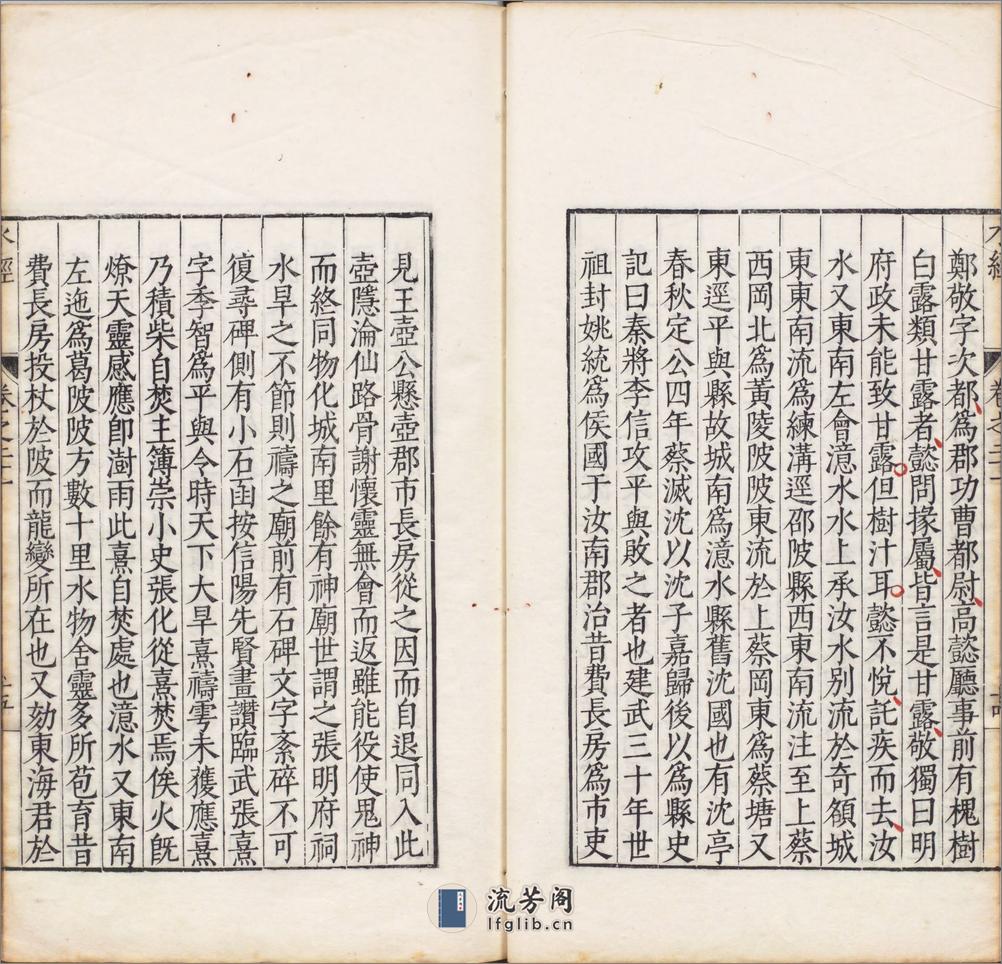 鄭敬字次都為郡功曹都尉高懿廳事前有槐樹
白露類甘露者懿問掾屬皆言是甘露敬獨曰明
府政未能致甘露但樹汁耳懿不悅託疾而去汝
水又東南左會澺水水上承汝水別流於奇頟城
東東南流為練溝逕邵陂縣西東南流注至上蔡
西岡北為黃陵陂陂東流於上蔡岡東為蔡塘又
東逕平輿縣故城南為澺水縣舊沈國也有沈亭
春秋定公四年蔡滅沈以沈子嘉歸後以為縣史
記曰秦將李信攻平輿敗之者也建武三十年世
祖封姚統為侯國于汝南郡治昔費長房為市吏
見王壺公懸壺郡市長房從之因而自退同入此
壺隱淪仙路骨謝懷靈無會而返雖能役使鬼神
而終同物化城南里餘有神廟世謂之張明府祠
水旱之不節則禱之廟前有石碑文字紊碎不可
復尋碑側有小石函按信陽先賢畫讚臨武張熹
字季智為平輿令時天下大旱熹禱雩未獲應熹
乃積柴自焚主簿崇小史張化從熹焚焉俟火既
燎天靈感應卽澍雨此熹自焚處也澺水又東南
左迤為葛陂陂方數十里水物含靈多所苞育昔
費長房投杖於陂而龍變所在也又劾東海君於
水經
卷之二十一
流芳阁
lfglib.cn